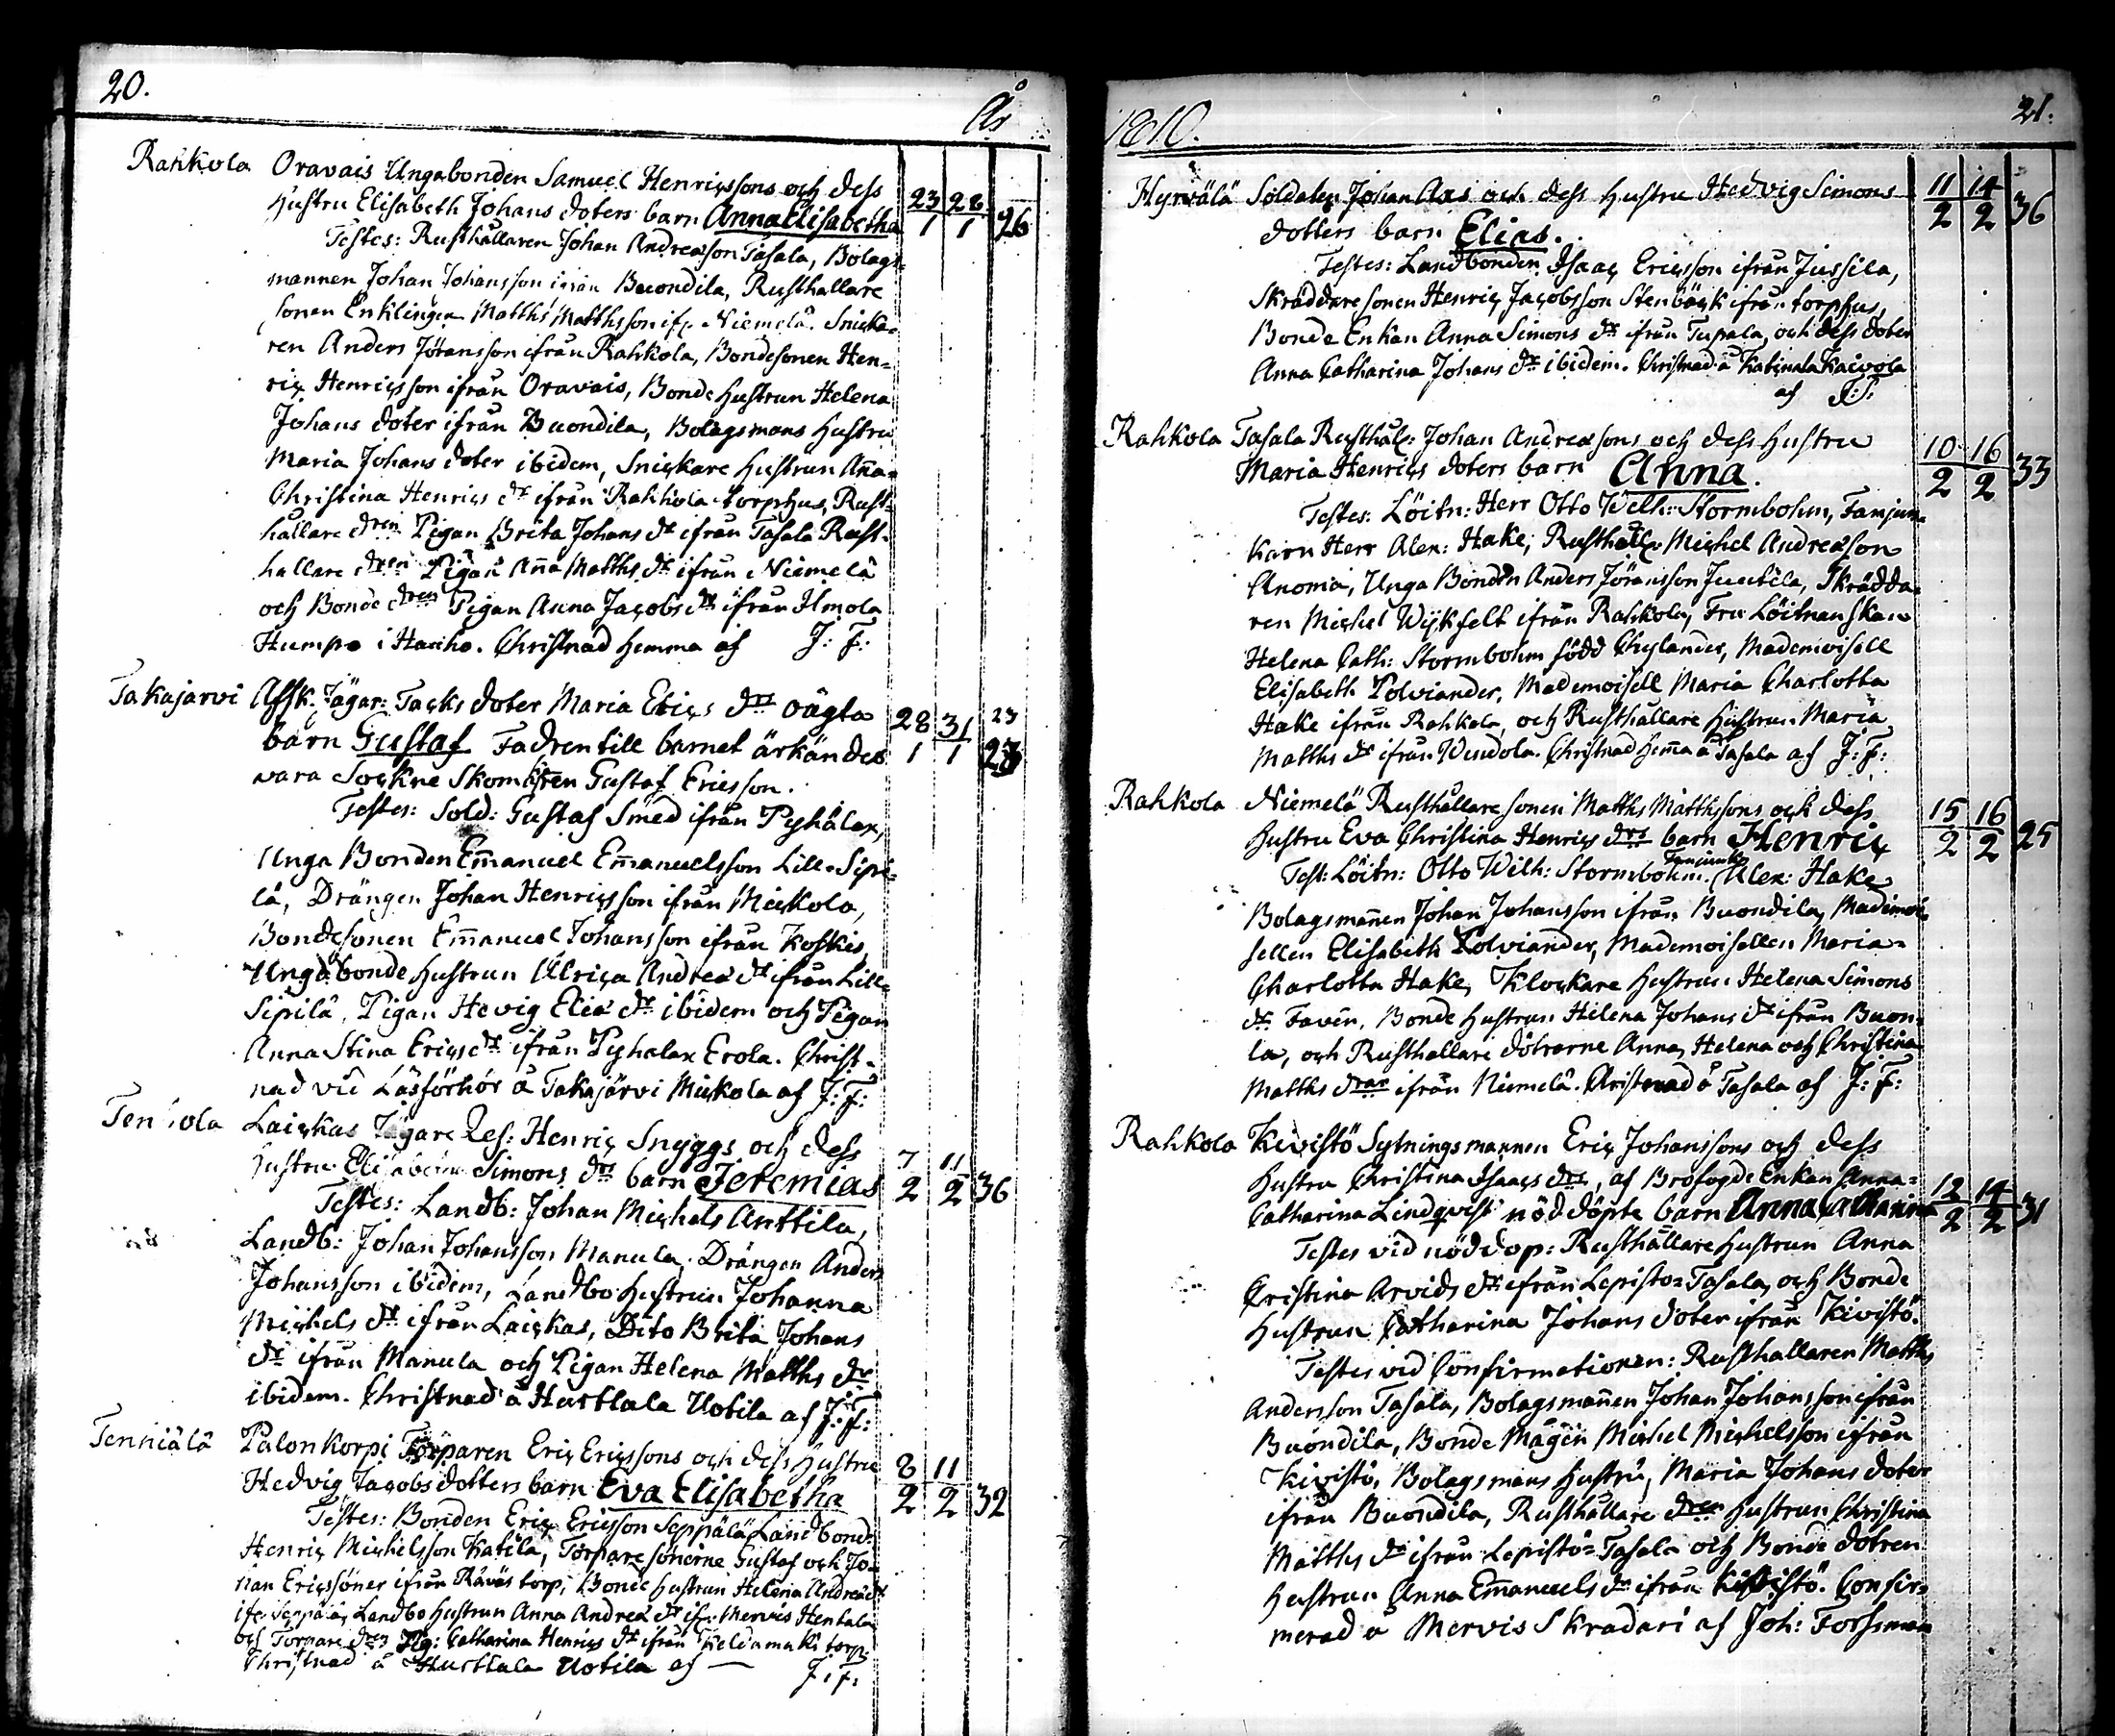 20.
År
Rahkola Oravais Ungabonden Samuel Henricssons och dess
Hustru Elisabeth Johans doters barn Anna Elisabetha 23/1 28/1 26
Testes: Rusthållaren Johan Andreæson Tasala, Bolags-
mannen Johan Johansson ifrån Buondila, Rusthallare
sonen Enklingen Matths Matthsson ifr. Niemelä. Snicka-
ren Anders Jöransson ifrån Rahkola, Bondesonen Hen-
ric Henricsson ifrån Oravais, Bonde hustrun Helena
Johans doter ifrån Buondila, Bolagsmans hustru
Maria Johans doter ibidem, Snickare hustrun Anna-
Christina Henrics dr ifrån Rahkola torphus, Rust-
hållare dren Pigan Brita Johans dr ifrån Tasala Rust-
hallare dren Pigan Anna Matths dr ifrån Niemelä
och Bonde dren Pigan Anna Jacobs dr ifrån Ilmola
Humpo i Hauho. Christnad hemma af J: F:
Takajarvi Afsk. Jägar: Tacks doter Maria Erics drs oägta
barn Gustaf Fadren till barnet ärkändes 28/1 31/1 23
23
vara Sockne Skom: sten Gustaf Ericsson.
Testes: Sold: Gustaf Smed ifrån Pyhälax,
Unga Bonden Emanuel Emanuelsson Lill-Sipi-
lä, Drängen Johan Henricsson ifrån Mickola,
Bondesonen Emanuel Johansson ifrån Koskis,
Ungabonde hustrun Ulrica Andreæ dr ifrån Lill-
Sipilä, Pigan Hevig Eliæ dr ibidem och Pigan
Anna Stina Erics dr ifrån Pyhalax Erola. Christ-
nad vid Läsförhör å Takajärvi Mickola af J: F:
Ten ola Laickas Jägare Res: Henric Snyggs och dess
hustru Elisabeths Simons drs barn Jeremias 7/2 11/2 36
Testes: Landb: Johan Michels Anttila,
Landb: Johan Johansson Manula. Drängen Anders
Johansson ibidem, Landbo hustrun Johanna
Michels dr ifrån Laickas, Dito Brita Johans
dr ifrån Manula och Pigan Helena Matths dr
ibidem. Christnad å Hurttala Uotila af J: F:
Tenniälä Palonkorpi Torparen Eric Ericssons och dess hustru
Hedvig Jacobs dotters barn Eva Elisabetha 8/2 11/2 32
Testes: Bonden Eric Ericsson Seppälä Landbond:
Henric Michelsson Katila, Torpare sönerne Gustaf och Jo-
han Ericssöner ifrån Råväs torp, Bonde hustrun Helena Andreæ dr
ifr. Seppälä, Landbo hustrun Anna Andreæ dr ifr. Mervis Hentala
och Torpare dren Pig: Catharina Henrics dr ifrån Keldamaki torp.
Christnad å Hurttala Uotila af — J: F:
1810.
21.
Hyrvälä Soldaten Johan Aas och dess hustru Hedvig Simons 11/2 14/2 36
dotters barn Elias.
Testes: Landbonden Isaac Ericsson ifrån Jussila,
Skräddare sonen Henric Jacobsson Stenbäck ifrån torphus,
Bonde Enkan Anna Simons dr ifrån Tupala, och dess doter
Anna Catharina Johans dr ibidem. Christnad å Katinala Kaivola
af J: F:
Rahkola Tasala Rusthål: Johan Andreæsons och dess hustru 10/2 16/2 33
Maria Henrics doters barn Anna.
Testes: Löitn: Herr Otto Wilh: Stormbohm, Fanjun-
karn Herr Alex: Hake, Rusthåll: Michel Andreæson
Anoma, Unga Bonden Anders Jöransson Juutila, Skrädda-
ren Michel Wijkfelt ifrån Rahkola, Fru Löitnanskan
Helena Cath: Stormbohm född Chylander, Mademoisell
Elisabeth Polviander, Mademoisell Maria Charlotta
Hake ifrån Rahkola, och Rusthållare hustrun Maria
Matths dr ifrån Uudola. Christnad hemma å Tasala af J: F:
Rahkola Niemelä Rusthållare sonen Matths Matthssons och dess 15/2 16/2 25
hustru Eva Christina Henrics drs barn Henric
Test: Löitn: Otto Wilh: Stormbohm. Fanjunk: Alex: Hake
Bolagsmannen Johan Johansson ifrån Buondila, Mademoi-
sellen Elisabeth Polviander, Mademoisellen Maria-
Charlotta Hake, Klockare hustrun Helena Simons
dr Favén, Bonde hustrun Helena Johans dr ifrån Buon-
la, och Rusthallare dötrarne Anna, Helena och Christina
Matths drar ifrån Niemelä. Christnad å Tasala af J: F:
Rahkola Kivistö Sytningsmannen Eric Johanssons och dess
hustru Christina Isaacs drs, af Brofogde Enkan Anna-
Catharina Lindqvist nöddöpte barn Anna Catharina 12/2 14/2 31
Testes vid nöddop: Rusthållare hustrun Anna
Cristina Arvids dr ifrån Lepisto-Tasala, och Bonde
hustrun Catharina Johans doter ifrån Kivistö.
Testes vid Confirmationen: Rusthallaren Matths
Andersson Tasala, Bolagsmannen Johan Johansson ifrån
Buondila, Bonde Mågen Michel Michelsson ifrån
Kivistö, Bolagsmans hustru, Maria Johans doter
ifrån Buondila, Rusthållare dren hustrun Christina
Matths dr ifrån Lepistö-Tasala och Bonde dotren
hustrun Anna Emanuels dr ifrån Kivistö. Confir-
merad å Mervis Skradari af Joh: Forssman